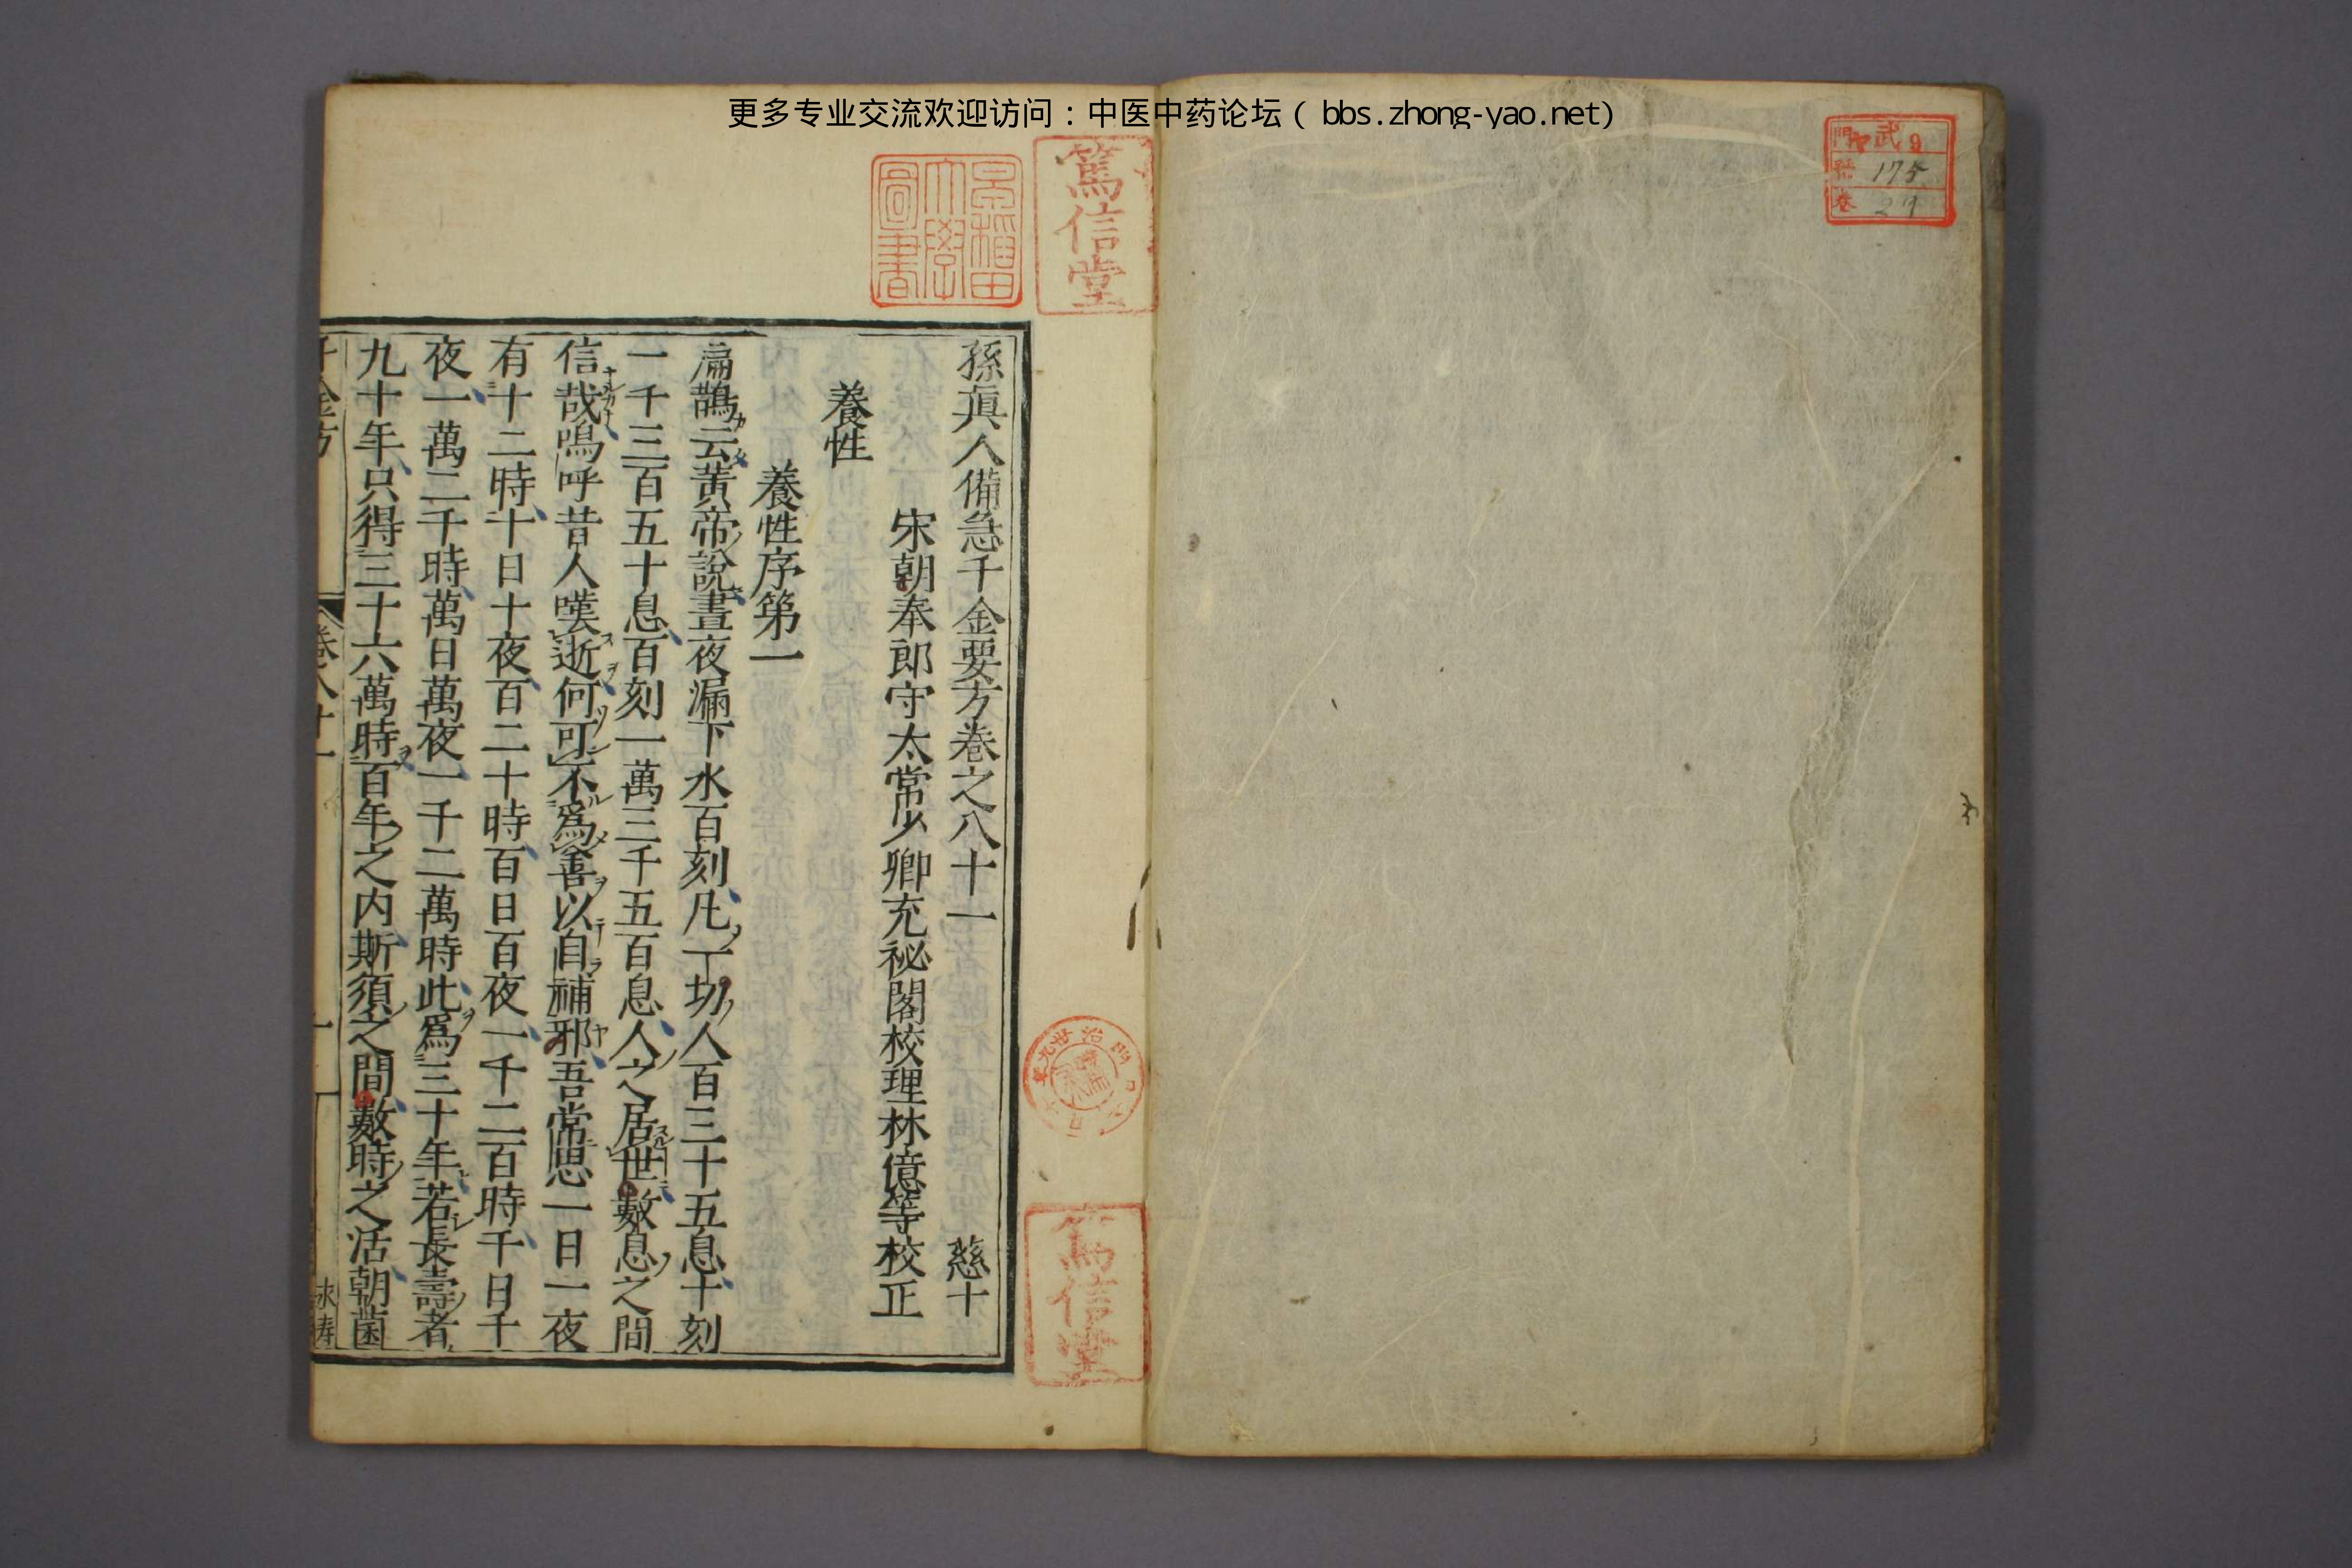 更多专业交流欢迎访问：中医中药论坛（ bbs.zhong-yao.net）
武9
門
號 175
卷
篤信堂
早稲田
大學
圖書
孫真人備急千金要方卷之八十一 慈十
宋朝奉郎守太常少卿充祕閣校理林億等校正
養性
養性序第一
扁鵲云黃帝說晝夜漏下水百刻凡一切人百三十五息十刻
一千三百五十息百刻一萬三千五百息人之居世數息之間
信哉嗚呼昔人嘆逝何可不爲善以自補邪吾常思一日一夜
有十二時十日十夜百二十時百日百夜一千二百時千日千
夜一萬二千時萬日萬夜一千二萬時此爲三十年若長壽者
九十年只得三十六萬時百年之内斯須之間數時之活朝菌
千金方 卷八十一 一
篤信堂